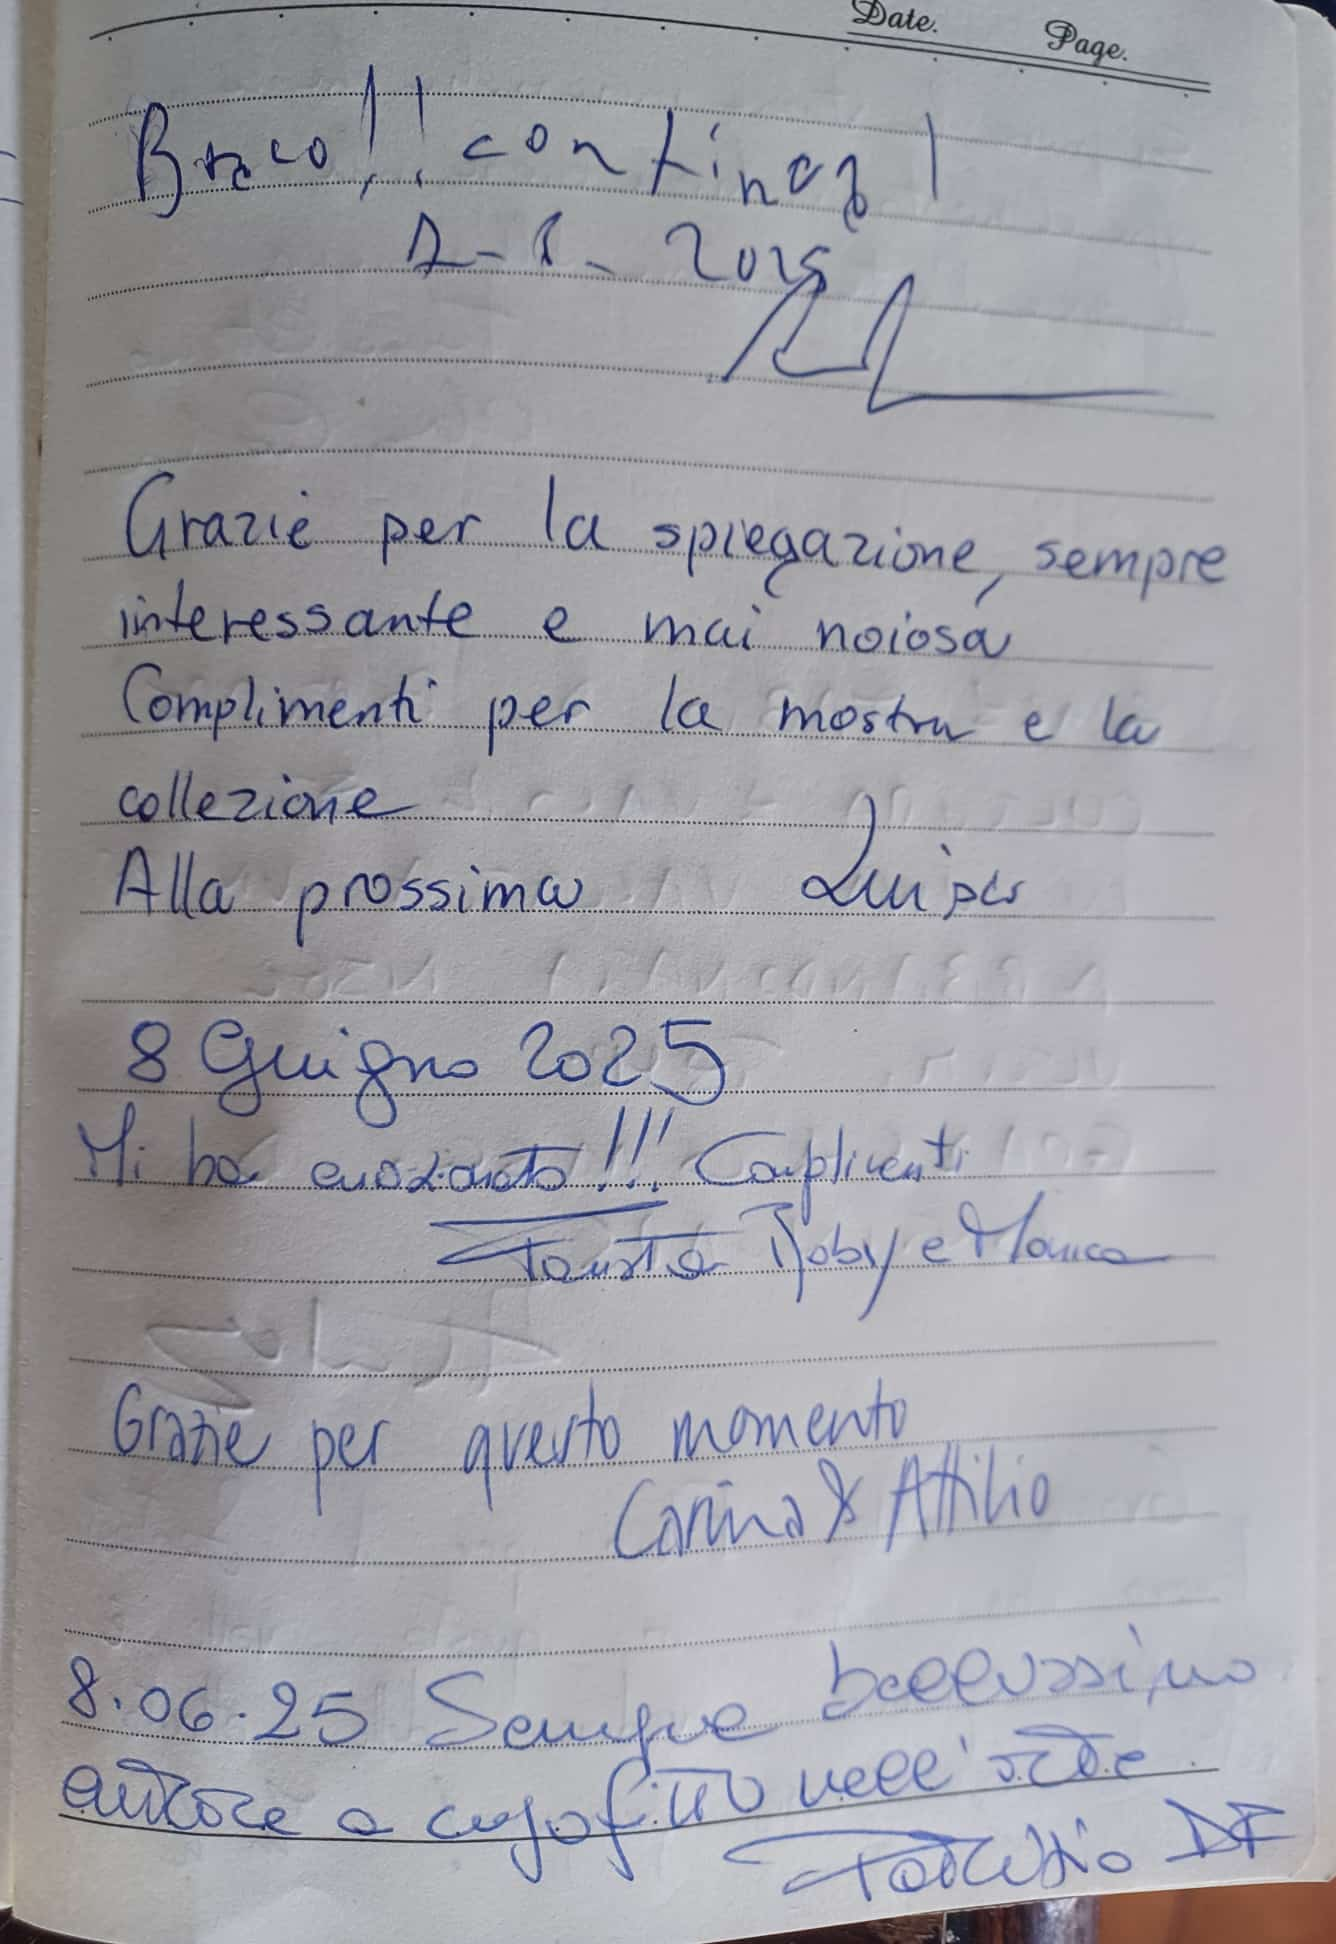 Date. Page.
Bravo!! continua!
1-6-2025
Grazie per la spiegazione, sempre
interessante e mai noiosa
Complimenti per la mostra e la
collezione
Alla prossima Luisa
8 Giugno 2025
Mi ha emozionato!!! Complimenti
Fausta Roby e Monica
Grazie per questo momento
Carina & Attilio
8.06.25 Sempre bellissimo
entrare a capofitto nell'arte.
Fabrizio DF